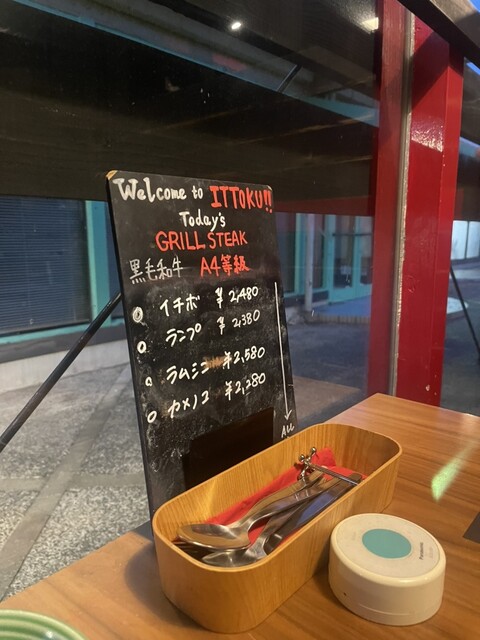 Welcome to ITTOKU!!
Today's
GRILL STEAK
黒毛和牛 A4等級
イチボ ¥2,480
ランプ ¥2,380
ラムシン ¥2,580
カメノコ ¥2,280
ALL
Panasonic